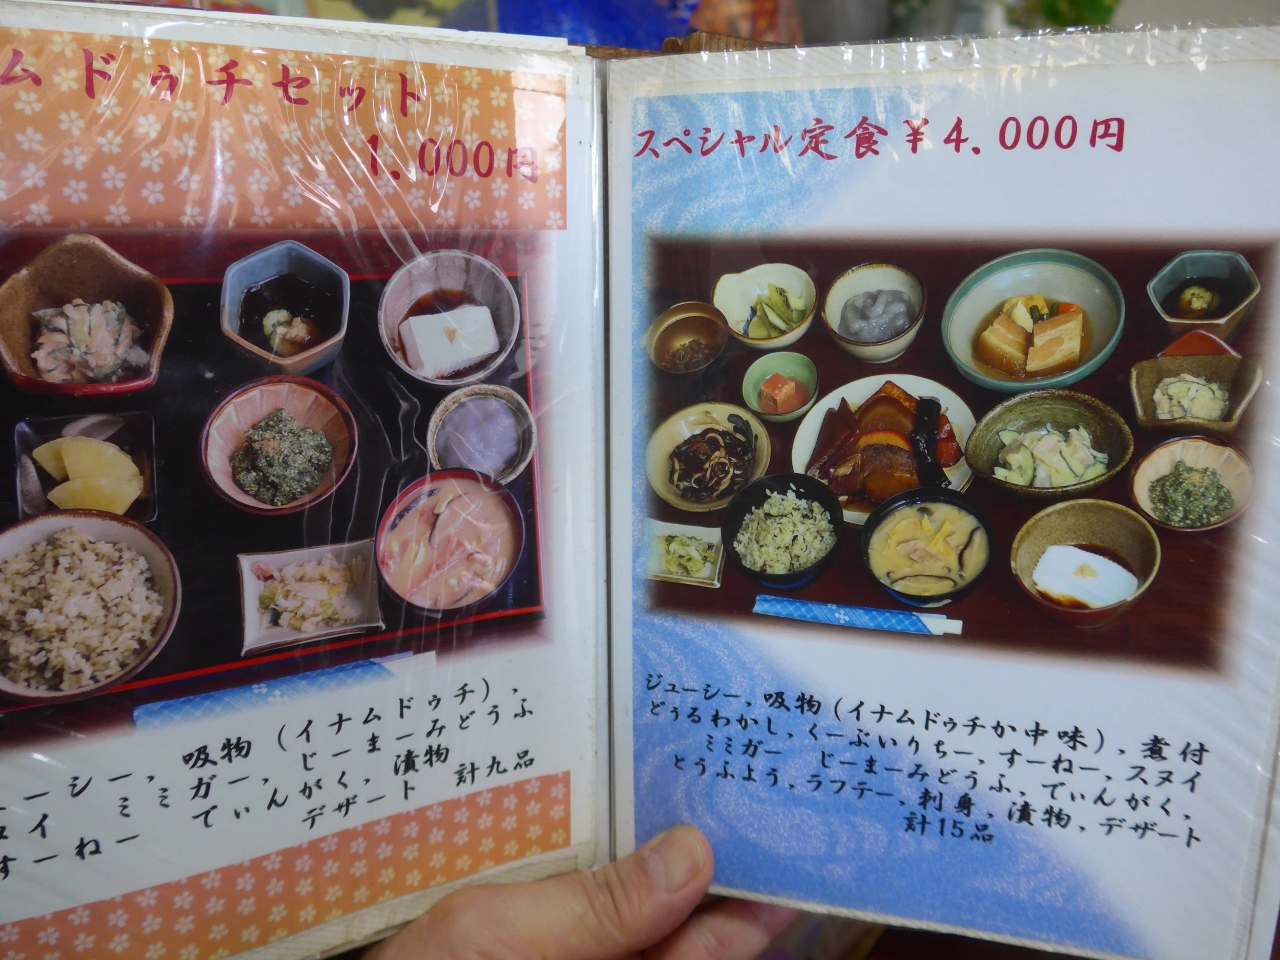 ムドゥチセット
1.000円
ーシー、吸物(イナムドゥチ)、
ミミガー、じーまーみどうふ
すーねー でぃんがく、漬物
デザート 計九品
スペシャル定食¥4.000円
ジューシー、吸物(イナムドゥチか中味)、煮付
どぅるわかし、くーぶいりちー、すーねー、スヌイ
ミミガー じーまーみどうふ、でぃんがく、
とうふよう、ラフテー、刺身、漬物、デザート
計15品